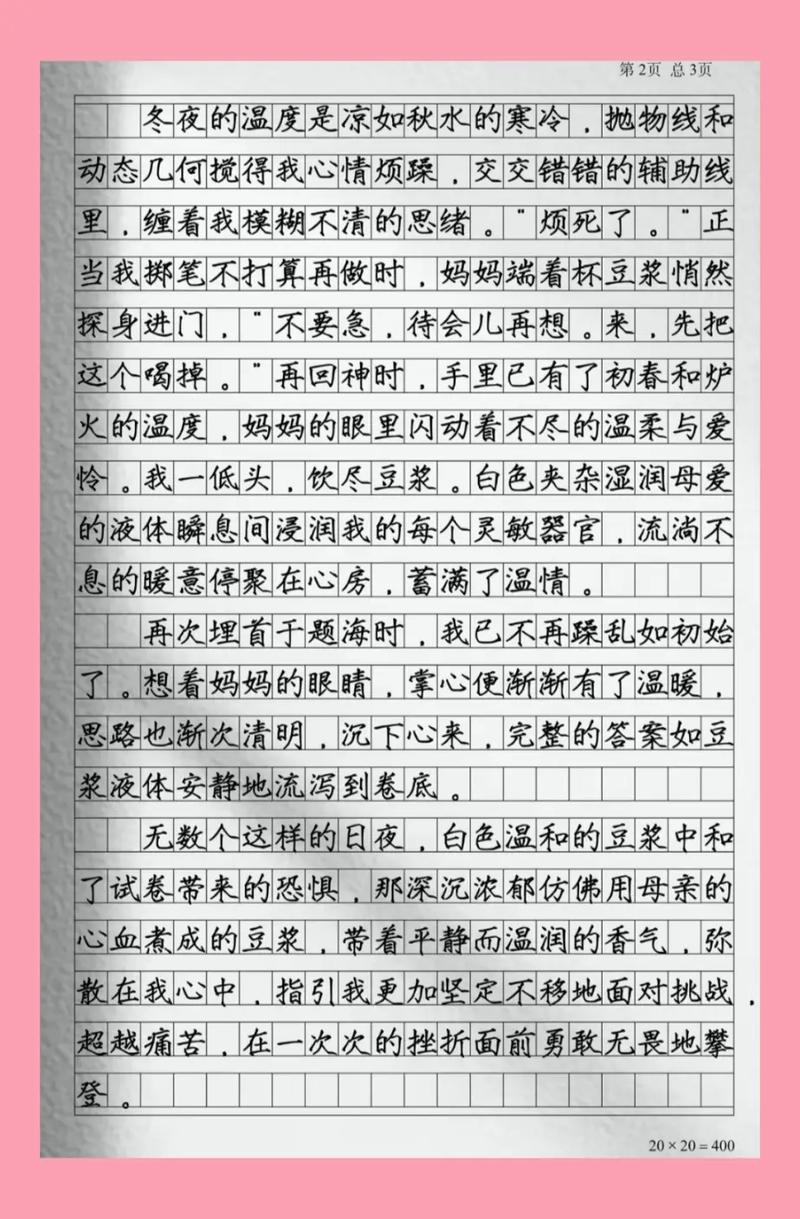 第2页 总3页
冬夜的温度是凉如秋水的寒冷，抛物线和
动态几何搅得我心情烦躁，交交错错的辅助线
里，缠着我模糊不清的思绪。"烦死了。"正
当我掷笔不打算再做时，妈妈端着杯豆浆悄然
探身进门，"不要急，待会儿再想。来，先把
这个喝掉。"再回神时，手里已有了初春和炉
火的温度，妈妈的眼里闪动着不尽的温柔与爱
怜。我一低头，饮尽豆浆。白色夹杂湿润母爱
的液体瞬息间浸润我的每个灵敏器官，流淌不
息的暖意停聚在心房，蓄满了温情。
再次埋首于题海时，我已不再躁乱如初始
了。想着妈妈的眼睛，掌心便渐渐有了温暖，
思路也渐次清明，沉下心来，完整的答案如豆
浆液体安静地流泻到卷底。
无数个这样的日夜，白色温和的豆浆中和
了试卷带来的恐惧，那深沉浓郁仿佛用母亲的
心血煮成的豆浆，带着平静而温润的香气，弥
散在我心中，指引我更加坚定不移地面对挑战，
超越痛苦，在一次次的挫折面前勇敢无畏地攀
登。
20×20=400